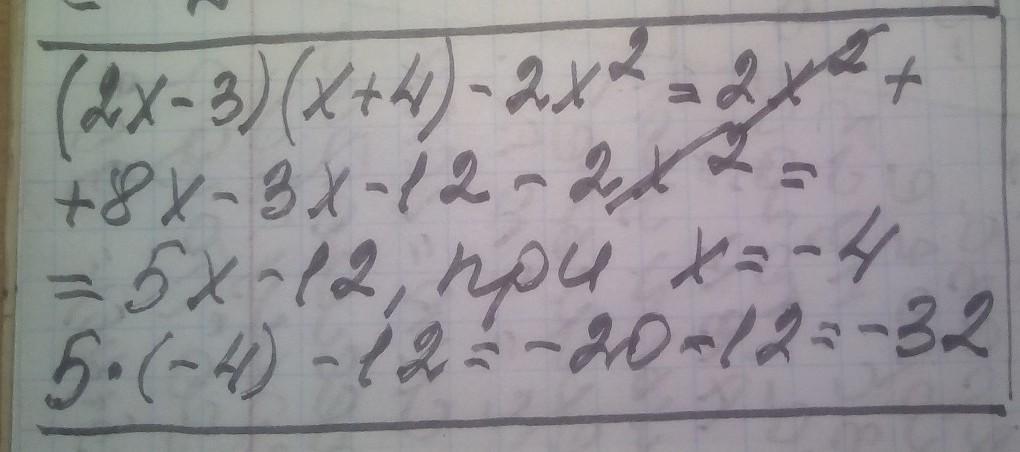 (2x-3)(x+4)-2x²=2x²+
+8x-3x-12-2x²=
=5x-12, при x=-4
5·(-4)-12=-20-12=-32